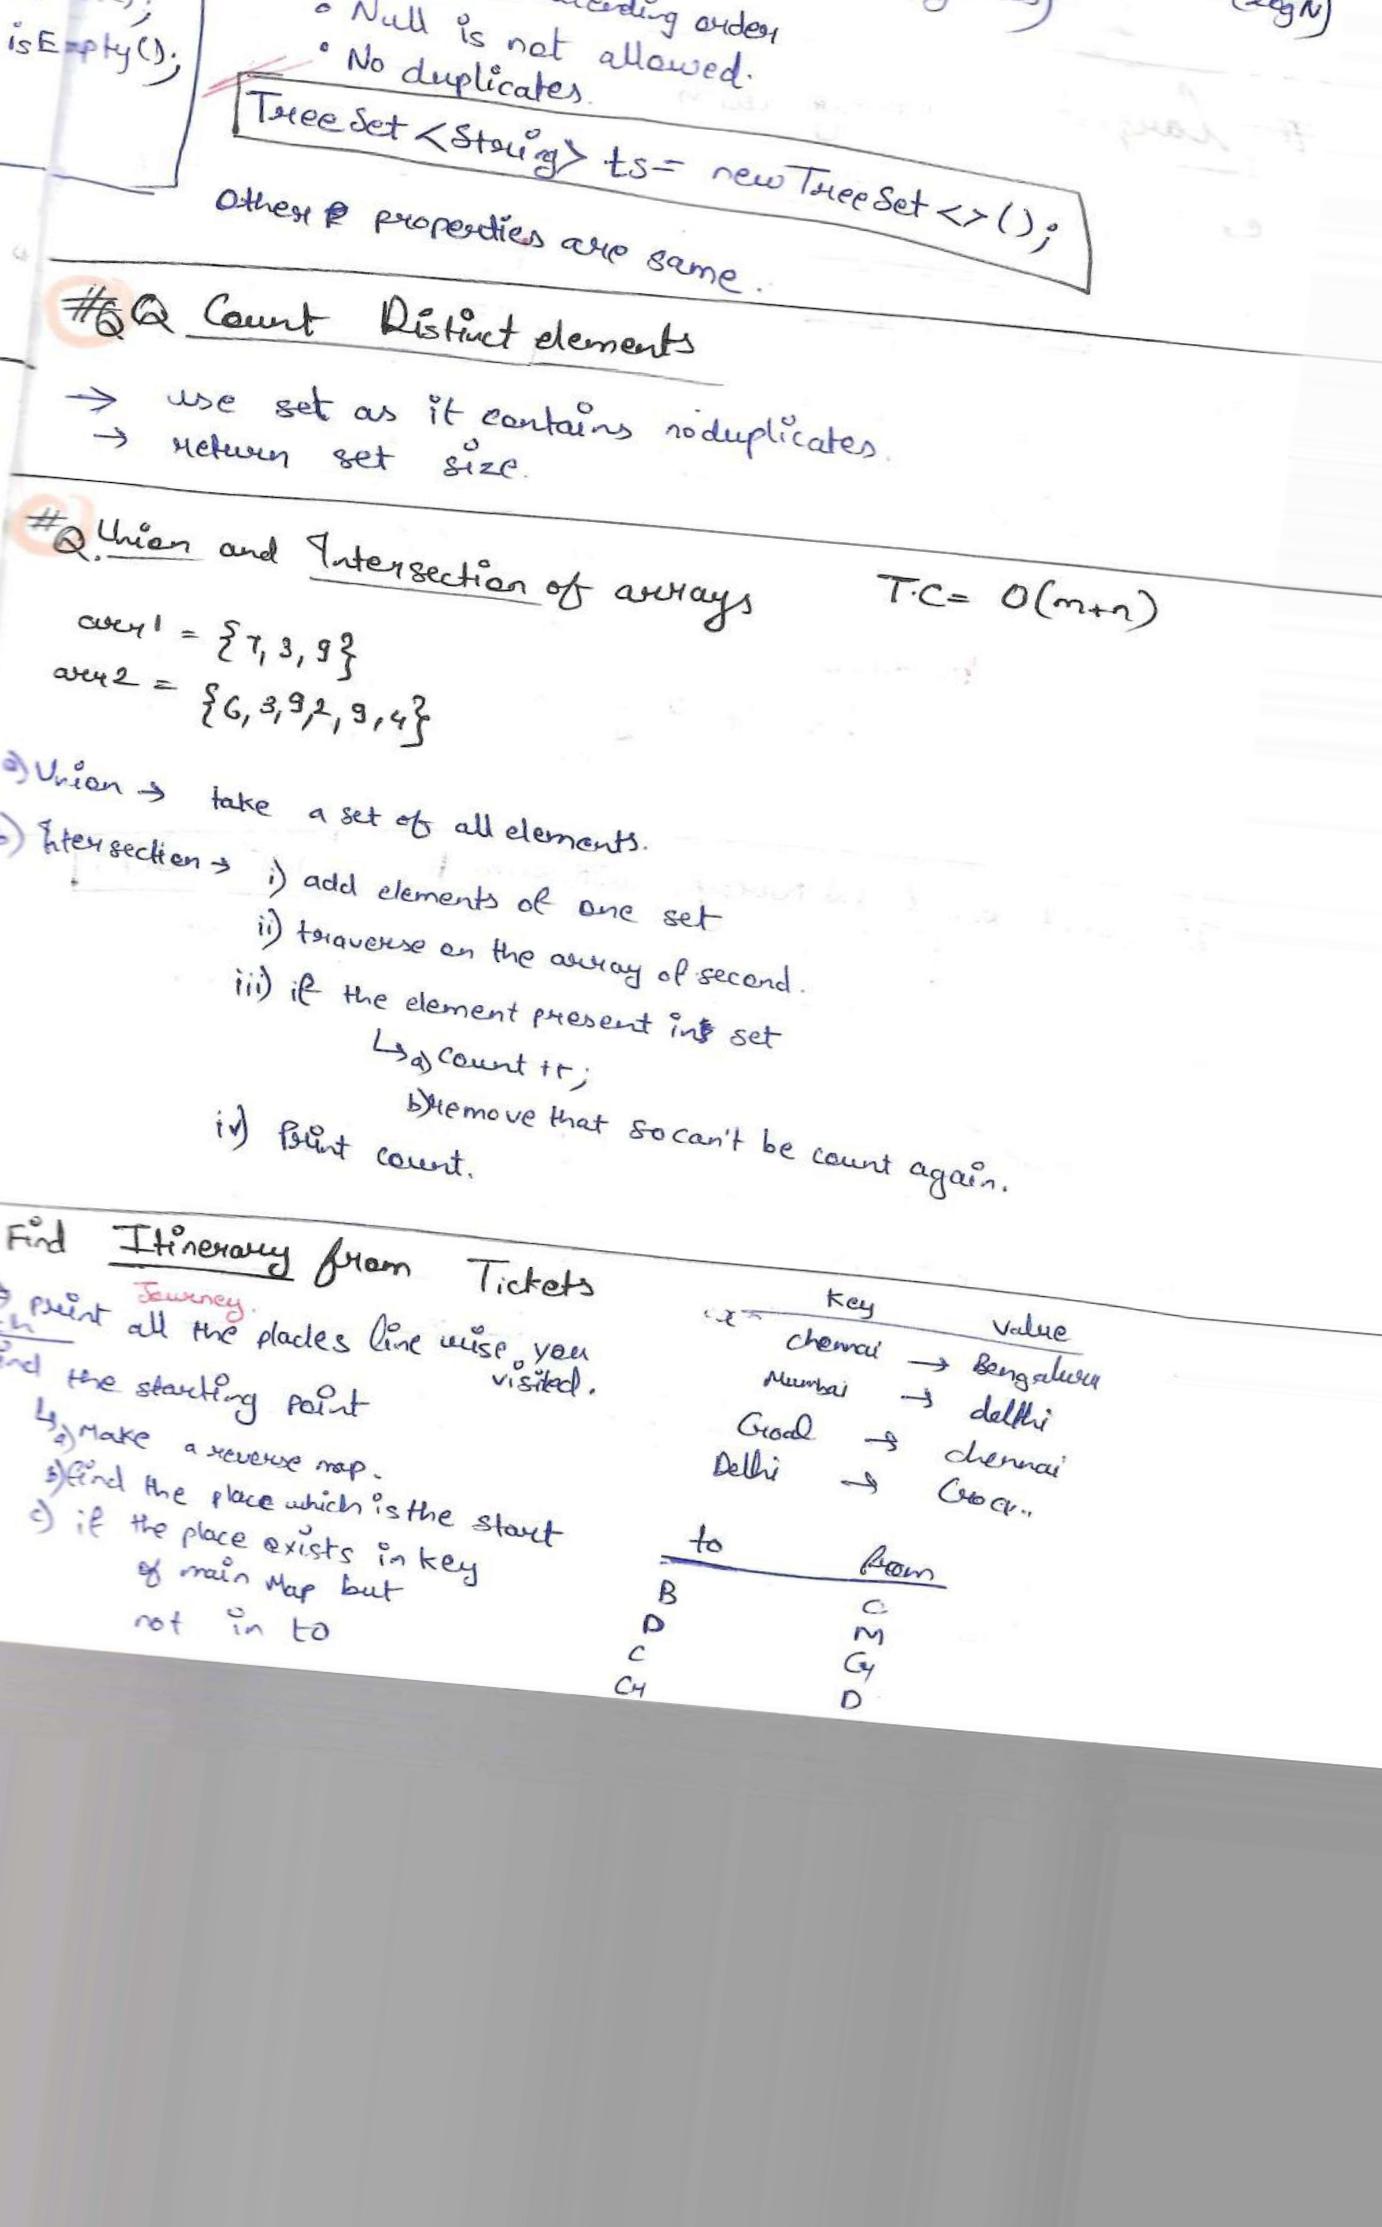 isEmpty();
ending order
• Null is not allowed.
• No duplicates.
TreeSet <String> ts = new TreeSet <> ();
Other properties are same.
#Q Count Distinct elements
→ use set as it contains no duplicates.
→ return set size.
#Q. Union and Intersection of arrays T.C = O(m+n)
arr1 = {7, 3, 9}
arr2 = {6, 3, 9, 2, 9, 4}
a) Union → take a set of all elements.
) Intersection → i) add elements of one set
ii) traverse on the array of second.
iii) if the element present in set
↳ a) count ++;
b) remove that so can't be count again.
iv) Print count.
Find Itinerary from Tickets
Journey.
print all the places line wise, you
visited.
the starting point
↳ a) Make a reverse map.
b) find the place which is the start
c) if the place exists in key
of main Map but
not in to
Key Value
chennai → Bengaluru
Mumbai → delhi
Goal → chennai
Delhi → Goa..
to from
B C
D M
C G
G D